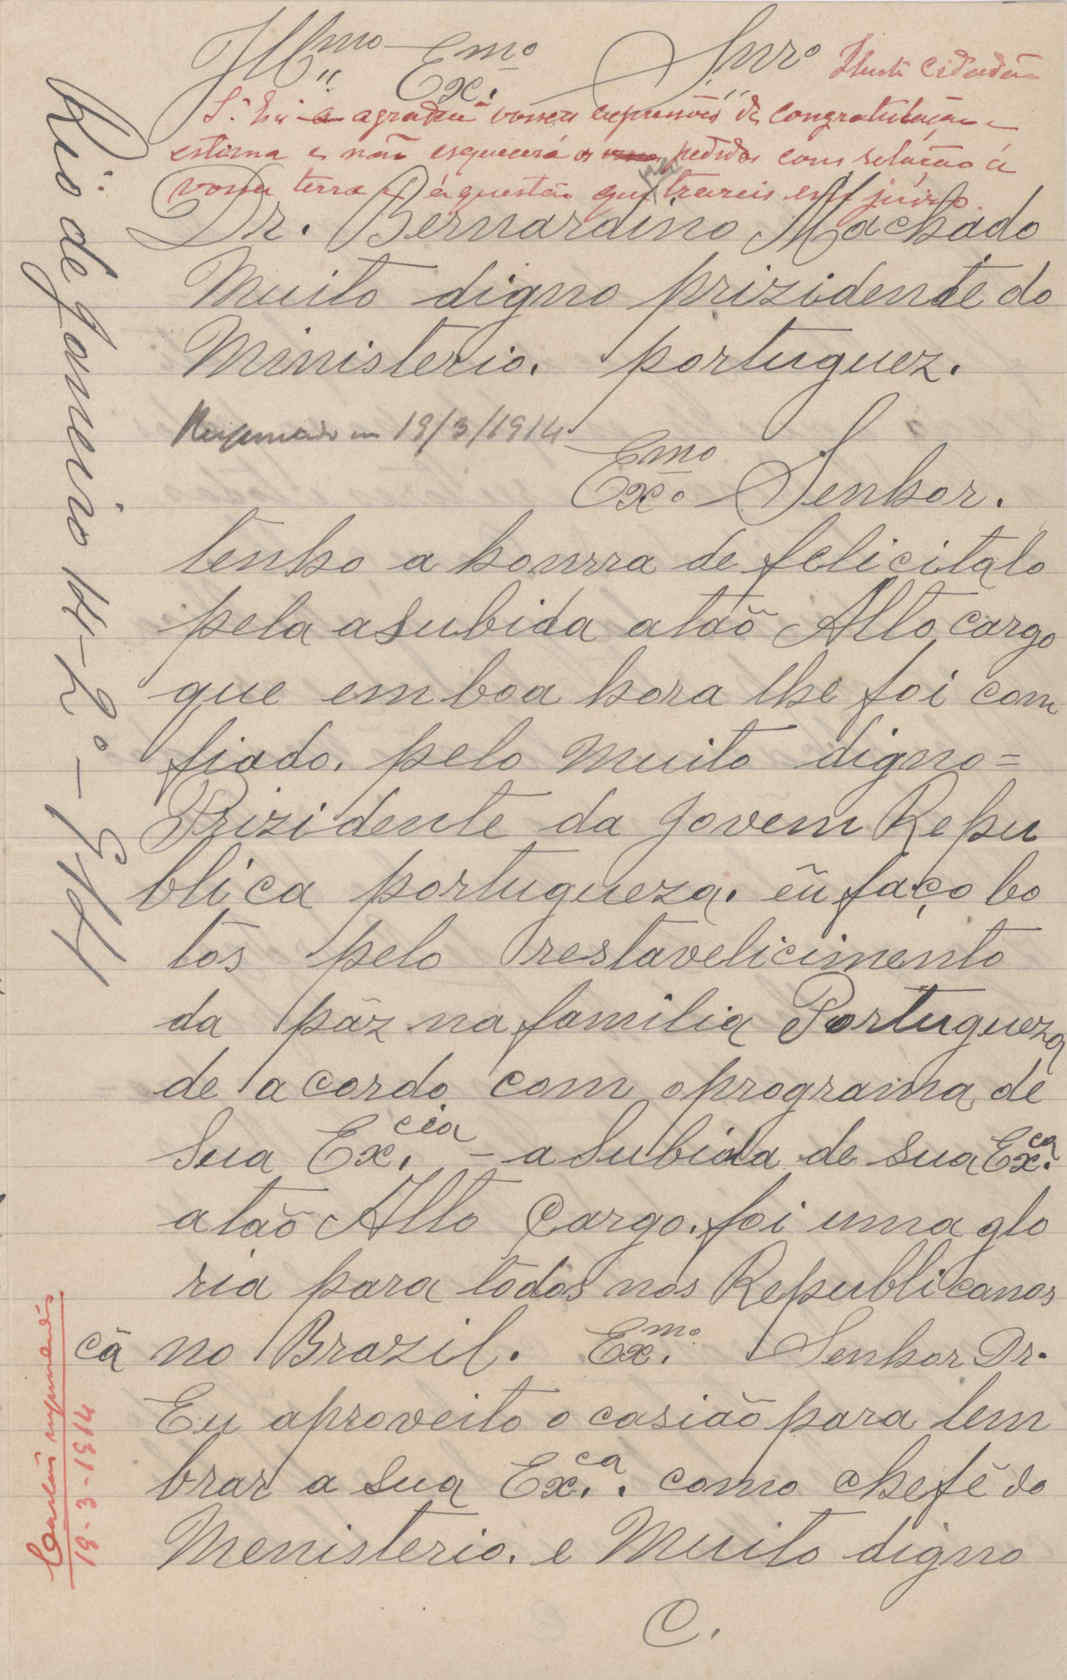 Ill.mo Ex.mo Snr.o
Illustre Cidadão
S. Ex.ia agradece vossas expressões de congratulação e
estima e não esquecerá os pedidos com relação á
vossa terra e á questão que trazeis em juizo.
Dr. Bernardino Machado
Muito digno prizidente do
Ministerio. portuguez.
Respondido em 19/3/1914
Ex.mo Senhor.
tenho a honrra de felicitalo
pela asubida atáõ Allto cargo
que emboa hora lhe foi com
fiado. pelo Muito digno=
Prizidente da Jovem Repu
blica portugueza. eũ faço bo
tos pelo restavelicimento
da pãz na familia Portugueza
de acordo com oprograma de
Sua Ex.cia - a Subida de sua Ex.ca
ataõ Allto Cargo. foi uma glo
ria para todos nos Republicanos
cá no Brazil. Ex.mo Senhor Dr.
Eu aproveito ocasiaõ para lem
brar a Sua Ex.ca. como chefe do
Menisterio. e Muito digno
C.
Rio de Janeiro 14-2º-914
Cartão respondido
19-3-1914